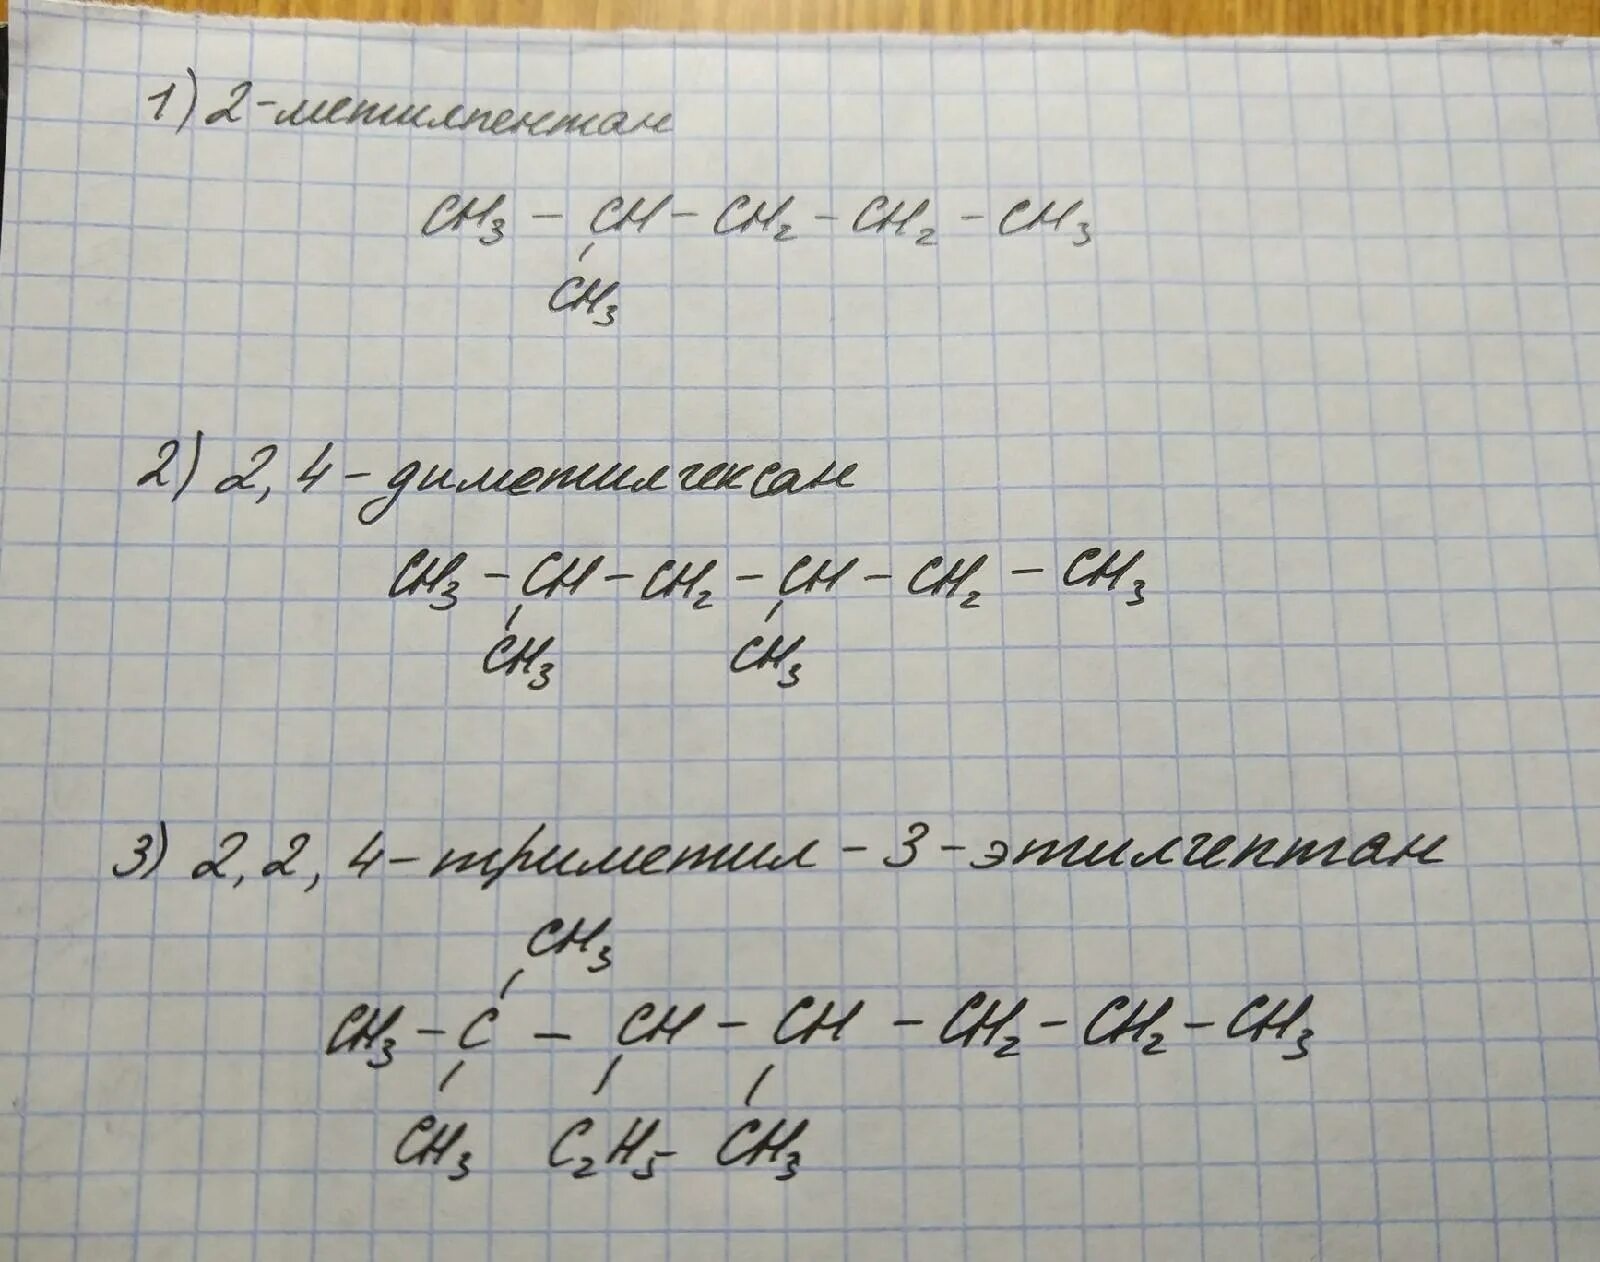 1) 2-метилпентан
CH₃ – CH – CH₂ – CH₂ – CH₃
CH₃
2) 2,4-диметилгексан
CH₃ – CH – CH₂ – CH – CH₂ – CH₃
CH₃ CH₃
3) 2,2,4-триметил-3-этилгептан
CH₃
CH₃ – C – CH – CH – CH₂ – CH₂ – CH₃
CH₃ C₂H₅ CH₃